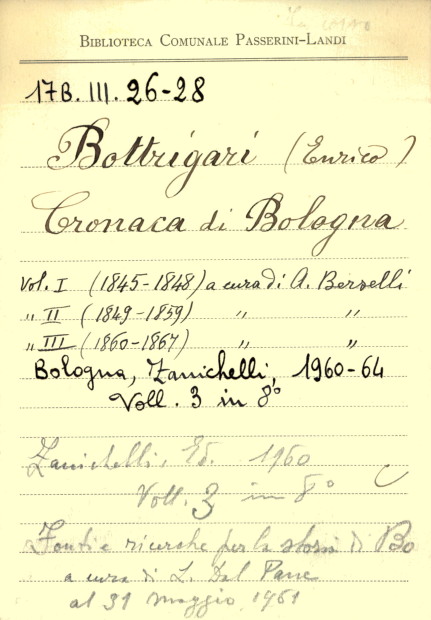 in corso
BIBLIOTECA COMUNALE PASSERINI-LANDI
17B. III. 26-28
Bottrigari (Enrico)
Cronaca di Bologna
Vol. I (1845-1848) a cura di A. Berselli
„ II (1849-1859) „ „
„ III (1860-1867) „ „
Bologna, Zanichelli, 1960-64
Voll. 3 in 8°
Zanichelli, Ed. 1960
Voll. 3 in 8°
Fonti e ricerche per la storia di Bo
a cura di L. Dal Pane
al 31 maggio 1961